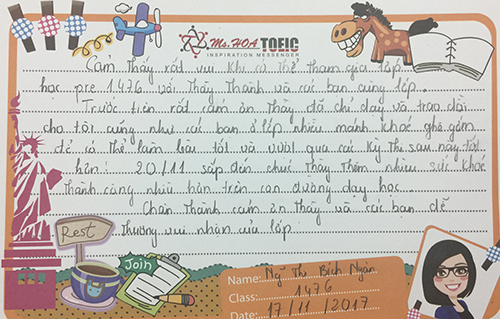 Ms.HOA TOEIC
INSPIRATION MESSENGER
Cảm thấy rất vui khi có thể tham gia lớp
học pre 1476 với Thầy Thành và các bạn cùng lớp.
Trước tiên rất cám ơn Thầy đã chỉ dạy và trao dồi
cho tôi cũng như các bạn ở lớp nhiều mánh khoé ghê gớm
để có thể làm bài tốt và vượt qua các kỳ thi sau này tốt
hơn! 20/11 sắp đến chúc Thầy thêm nhiều sức khoẻ
thành công nhiều hơn trên con đường dạy học.
Chân thành cám ơn Thầy và các bạn dễ
thương vui nhộn của lớp.
Rest
Join
Name: Ng Thị Bích Ngân
Class: 1476
Date: 17/11/2017